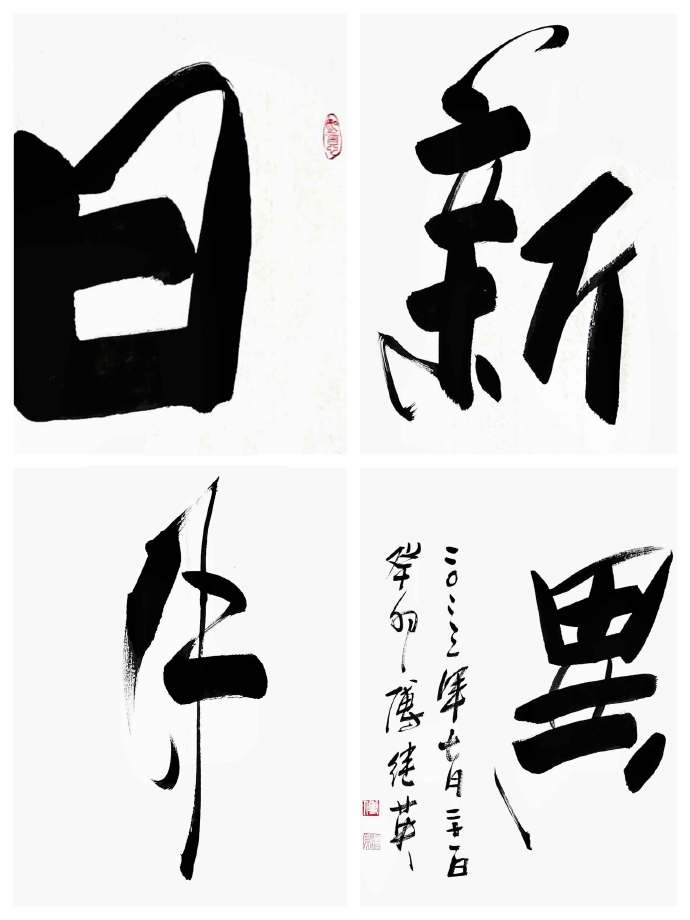 日
新
月
異
二〇二三年七月二十一日
癸卯傅继英